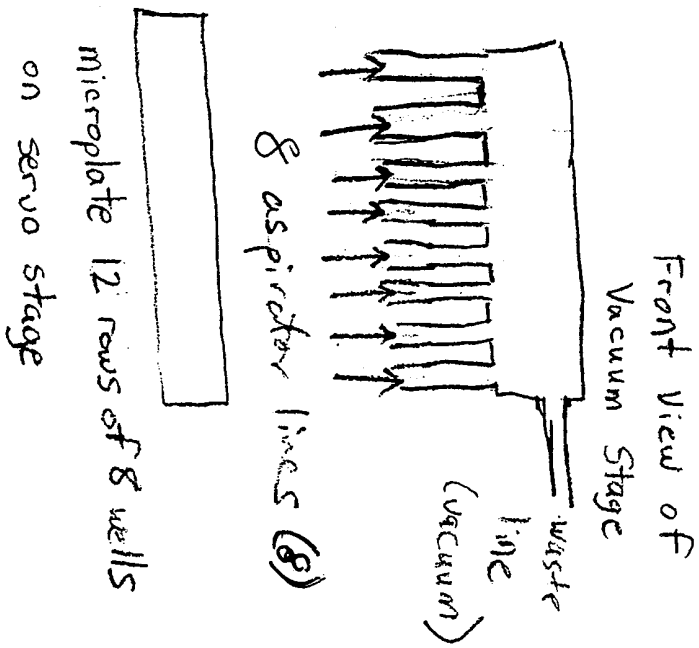 Front View of
Vacuum Stage
waste
line
(vacuum)
8 aspirator lines (8)
microplate 12 rows of 8 wells
on servo stage